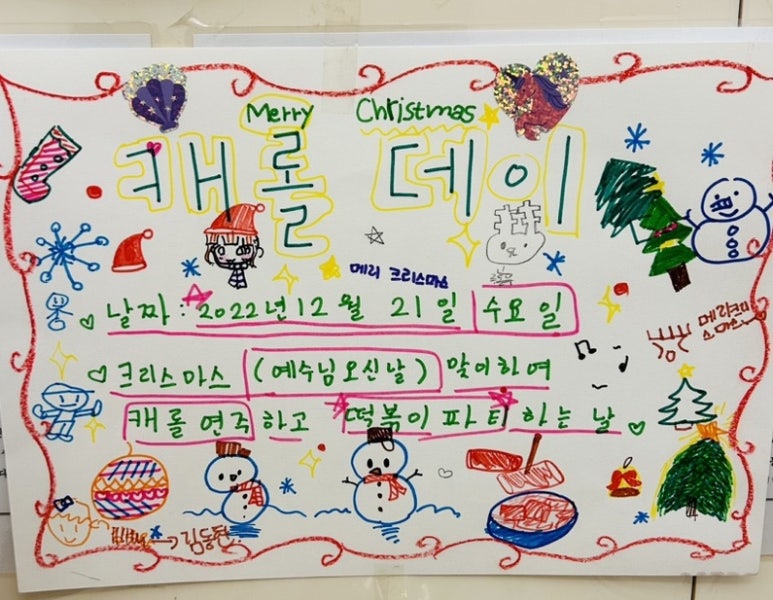 Merry Christmas
캐롤 데이
메리 크리스마스
날짜 : 2022년 12월 21일 수요일
메리크리
스마스
크리스마스 (예수님오신날) 맞이하여
캐롤 연주 하고 떡볶이 파티 하는 날